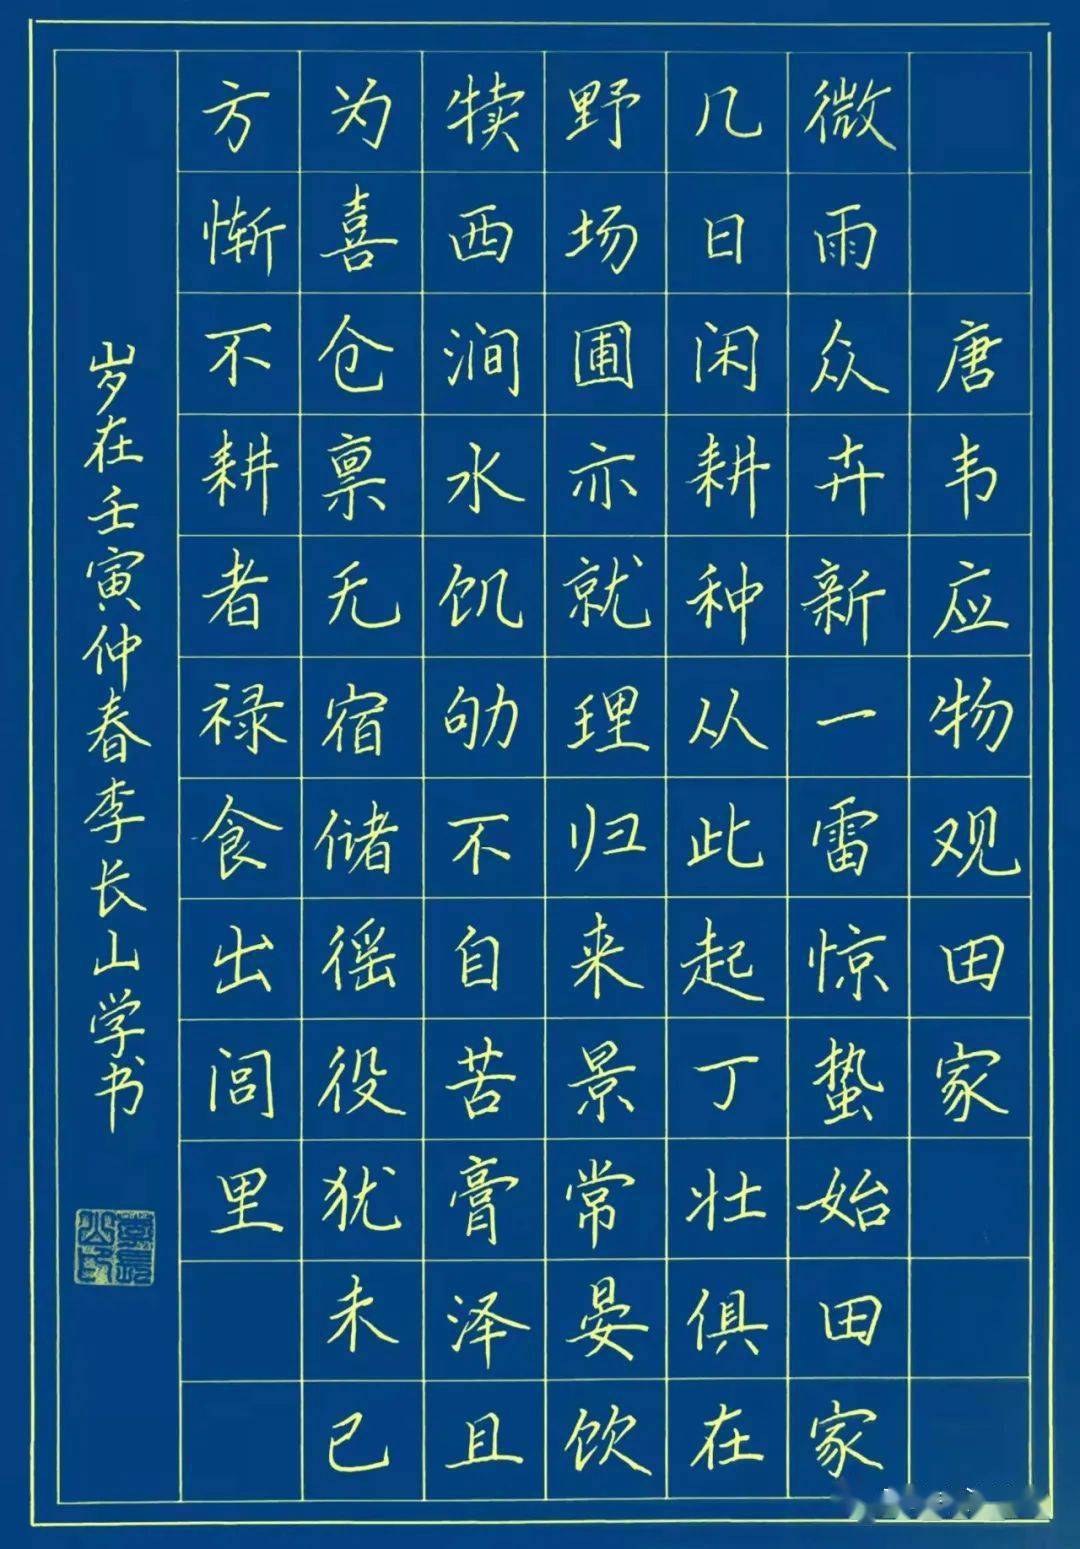 唐韦应物观田家
微雨众卉新一雷惊蛰始田家
几日闲耕种从此起丁壮俱在
野场圃亦就理归来景常晏饮
犊西涧水饥劬不自苦膏泽且
为喜仓禀无宿储徭役犹未已
方惭不耕者禄食出闾里
岁在壬寅仲春李长山学书